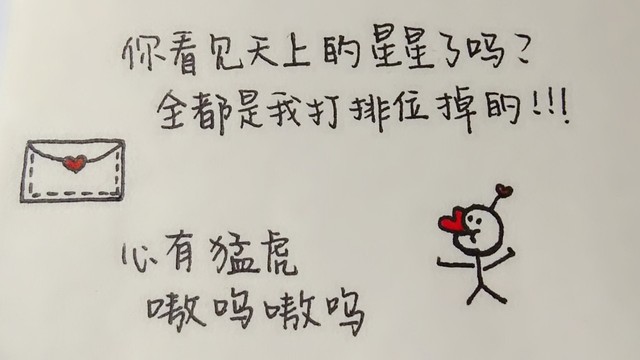 你看见天上的星星了吗？
全都是我打排位掉的!!!
心有猛虎
嗷呜嗷呜